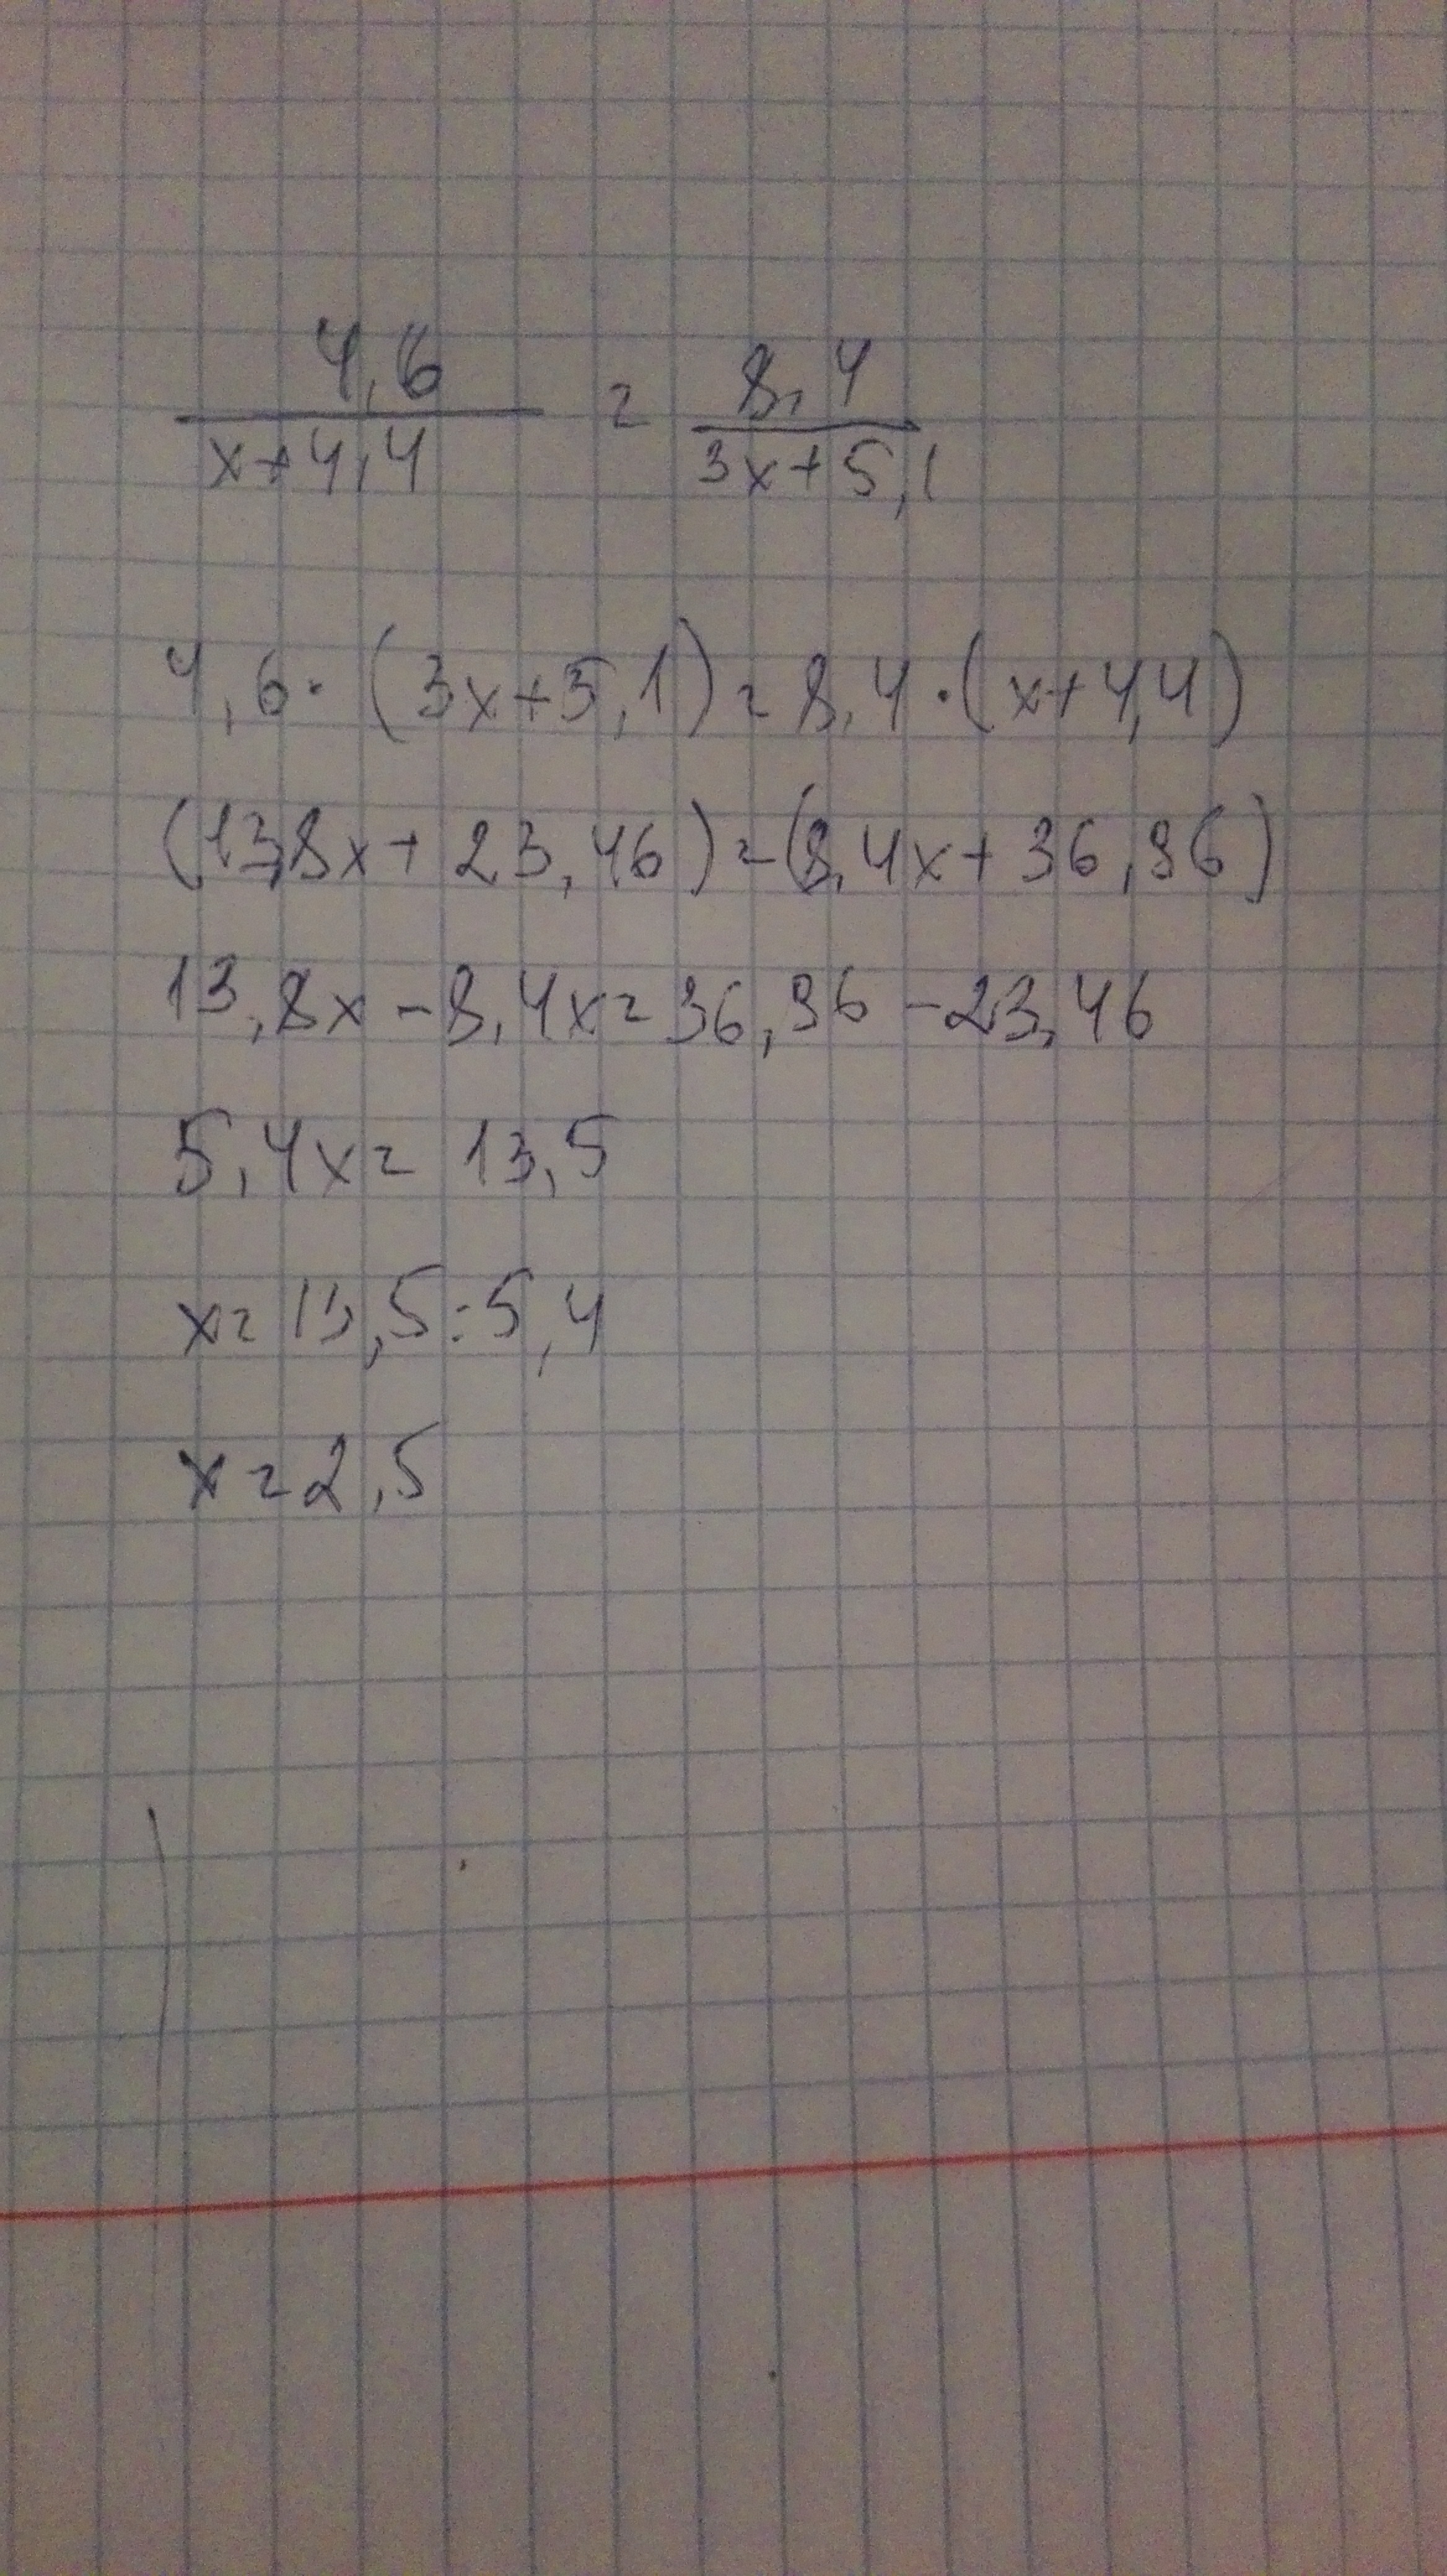 4,6 / x+4,4 = 8,4 / 3x+5,1
4,6·(3x+5,1)=8,4·(x+4,4)
(13,8x+23,46)=(8,4x+36,96)
13,8x-8,4x=36,96-23,46
5,4x=13,5
x=13,5:5,4
x=2,5